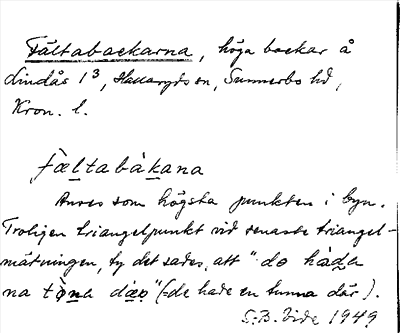 Fältabackarna, höga backar å
Lindås 1³, Hallaryds sn, Sunnerbo hd,
Kron. l.
fæltabàkana
Anses som högsta punkten i byn.
Troligen triangelpunkt vid senaste triangel-
mätningen, ty det sades, att "do hàda
na tòna dæo" (= de hade en tunna där).
S.B. Vide 1949